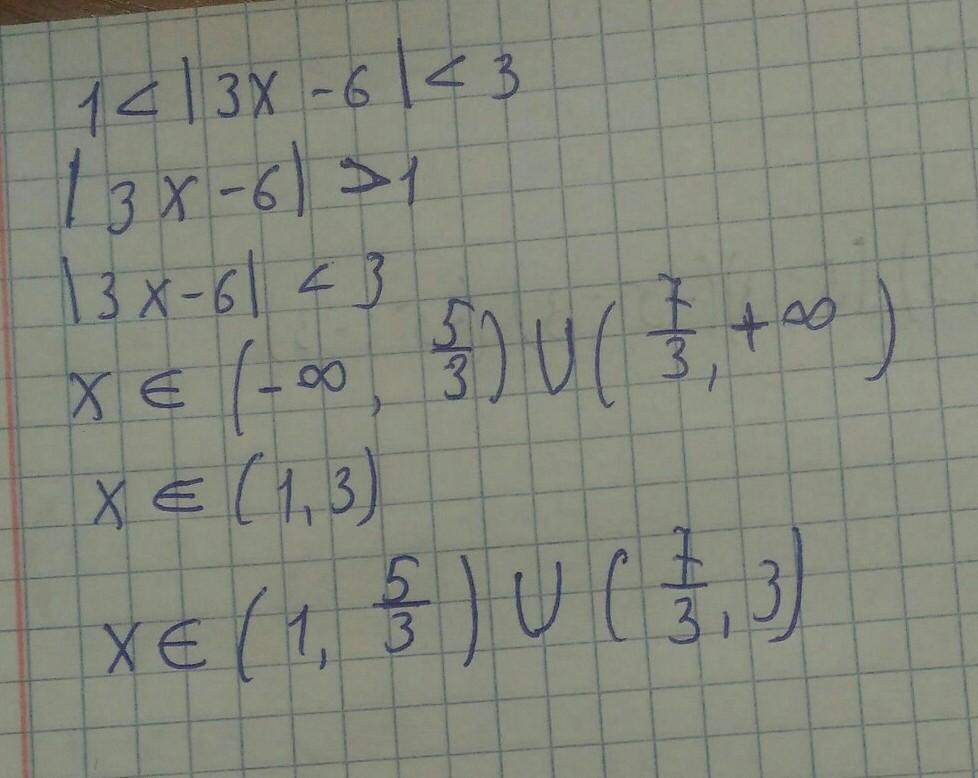 1 < |3x - 6| < 3
|3x - 6| > 1
|3x - 6| < 3
x ∈ (-∞, 5/3) ∪ (7/3, +∞)
x ∈ (1, 3)
x ∈ (1, 5/3) ∪ (7/3, 3)